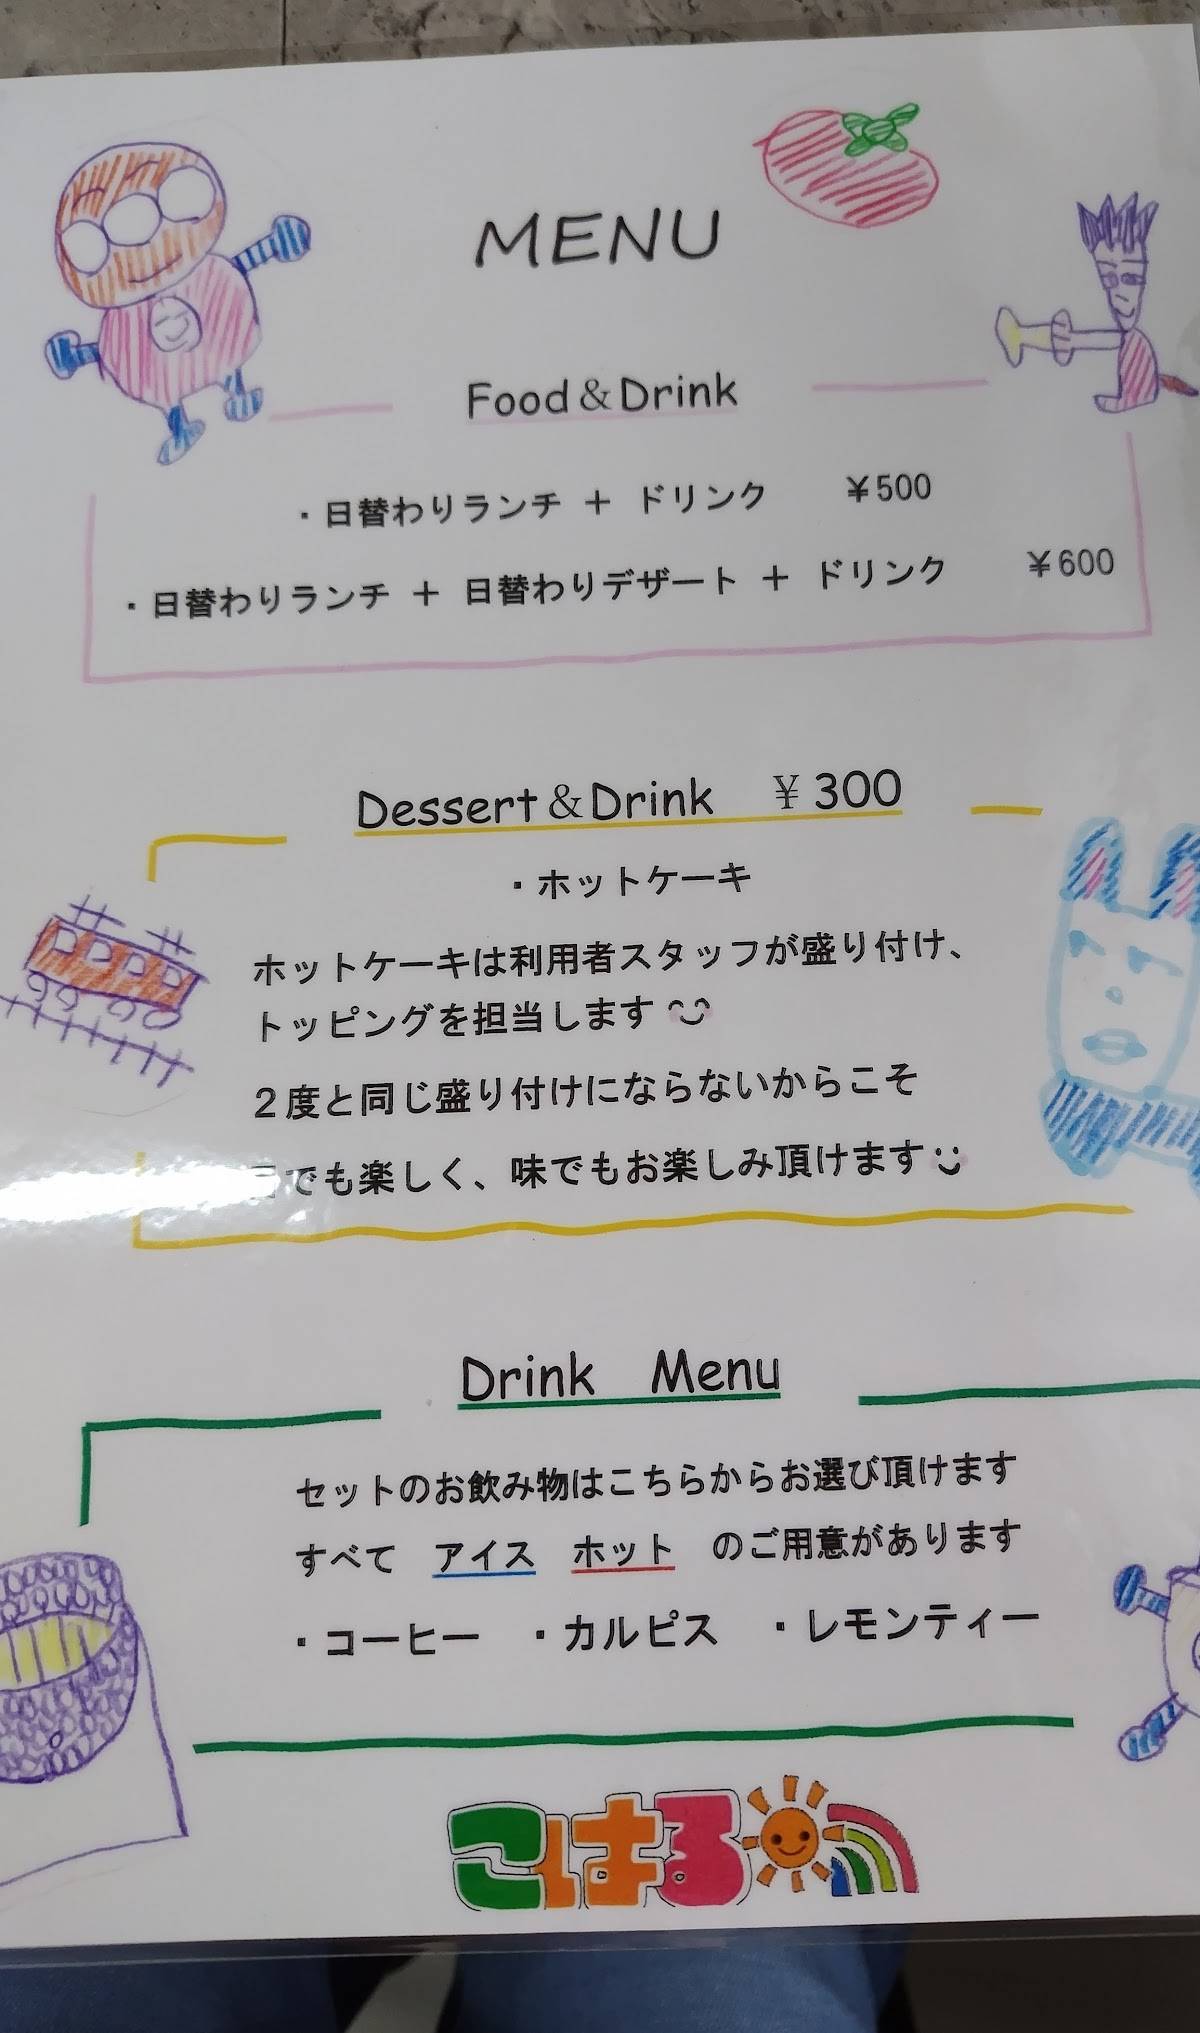 MENU
Food＆Drink
・日替わりランチ ＋ ドリンク　￥500
・日替わりランチ ＋ 日替わりデザート ＋ ドリンク　￥600
Dessert＆Drink　￥300
・ホットケーキ
ホットケーキは利用者スタッフが盛り付け、
トッピングを担当します
２度と同じ盛り付けにならないからこそ
目でも楽しく、味でもお楽しみ頂けます
Drink　Menu
セットのお飲み物はこちらからお選び頂けます
すべて　アイス　ホット　のご用意があります
・コーヒー　・カルピス　・レモンティー
こはる